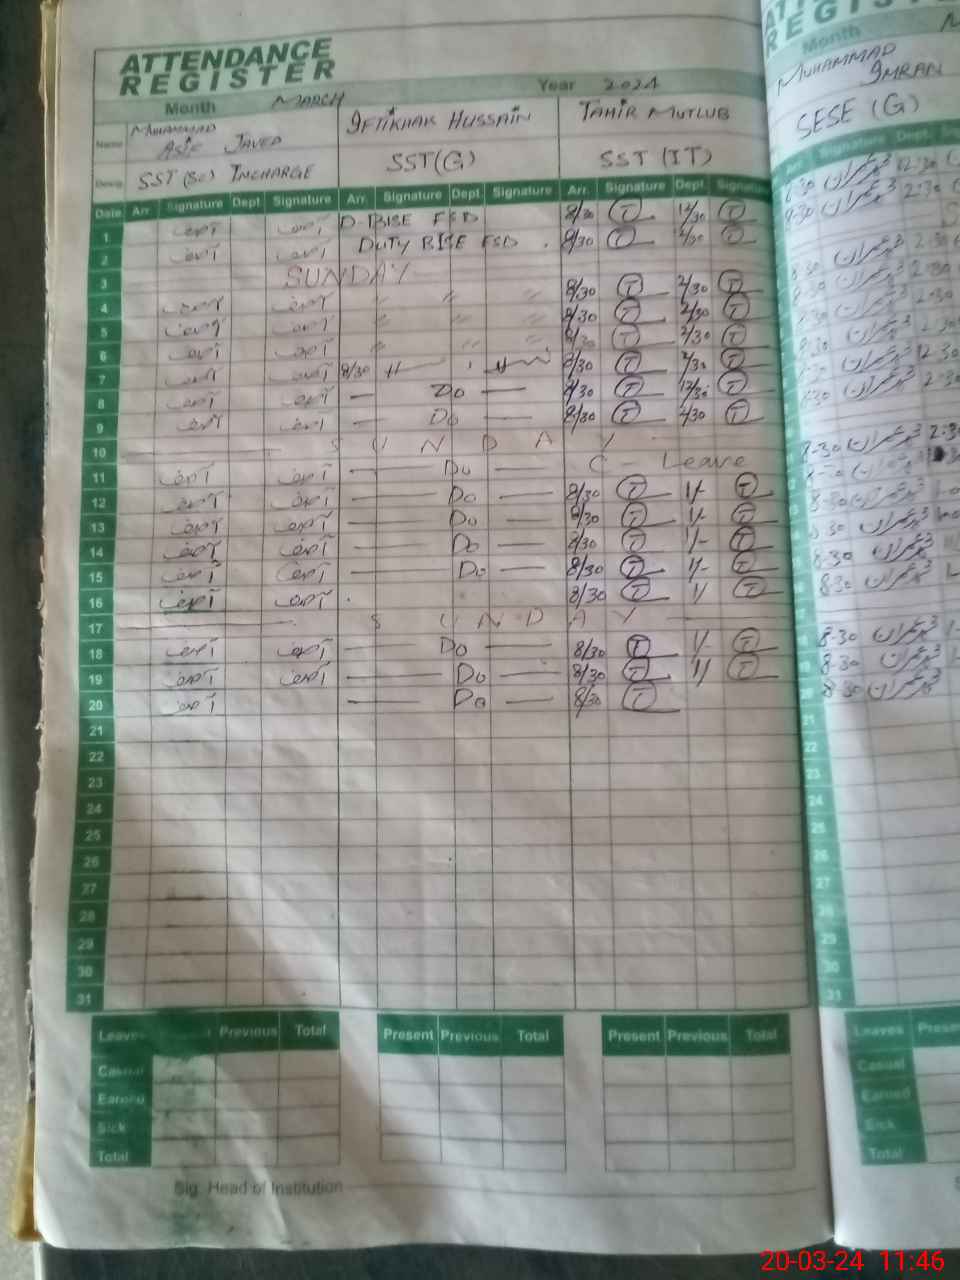 ATTENDANCE
REGISTER
Month MARCH Year 2024
Name MUHAMMAD ASIF JAVED IFTIKHAR HUSSAIN TAHIR MUTLUB
Desig. SST (SC) INCHARGE SST(G) SST (IT)
Date Arr. Signature Dept. Signature Arr. Signature Dept. Signature Arr. Signature Dept. Signature
1 آصف آصف D-BISE FSD 8/30 T 12/30 T
2 آصف آصف DUTY BISE FSD 8/30 T 2/30 T
3 SUNDAY
4 آصف آصف 〃 〃 〃 8/30 T 2/30 T
5 آصف آصف 〃 〃 8/30 T 2/30 T
6 آصف آصف 〃 8/30 T 2/30 T
7 آصف آصف 8/30 8/30 T 2/30 T
8 آصف آصف — Do — 8/30 T 12/30 T
9 آصف آصف — Do — 8/30 T 2/30 T
10 SUNDAY
11 آصف آصف — Do — C - Leave
12 آصف آصف — Do — 8/30 T 1/- T
13 آصف آصف — Do — 8/30 T 1/- T
14 آصف آصف — Do — 8/30 T 1/- T
15 آصف آصف — Do — 8/30 T 1/- T
16 آصف آصف 8/30 T 1/ T
17 SUNDAY
18 آصف آصف — Do — 8/30 T 1/- T
19 آصف آصف — Do — 8/30 T 1/ T
20 آصف — Do — 8/30 T
21
22
23
24
25
26
27
28
29
30
31
Leaves Previous Total Present Previous Total Present Previous Total
Casual
Earned
Sick
Total
Sig. Head of Institution
REGIS
Month
MUHAMMAD IMRAN
SESE (G)
Signature Dept.
8:30 محمد عمران 12:30
8:30 محمد عمران 2:30
8:30 محمد عمران 2:30
8:30 محمد عمران 2:30
8:30 محمد عمران 2:30
8:30 محمد عمران 2:30
8:30 محمد عمران 12:30
8:30 محمد عمران 2:30
8-30 محمد عمران 2:30
8-30 محمد عمران
8-30 محمد عمران
8-30 محمد عمران
8-30 محمد عمران
8-30 محمد عمران
8-30 محمد عمران
8-30 محمد عمران
8-30 محمد عمران
21
22
23
24
25
26
27
28
29
30
31
Leaves Present
Casual
Earned
Sick
Total
20-03-24 11:46